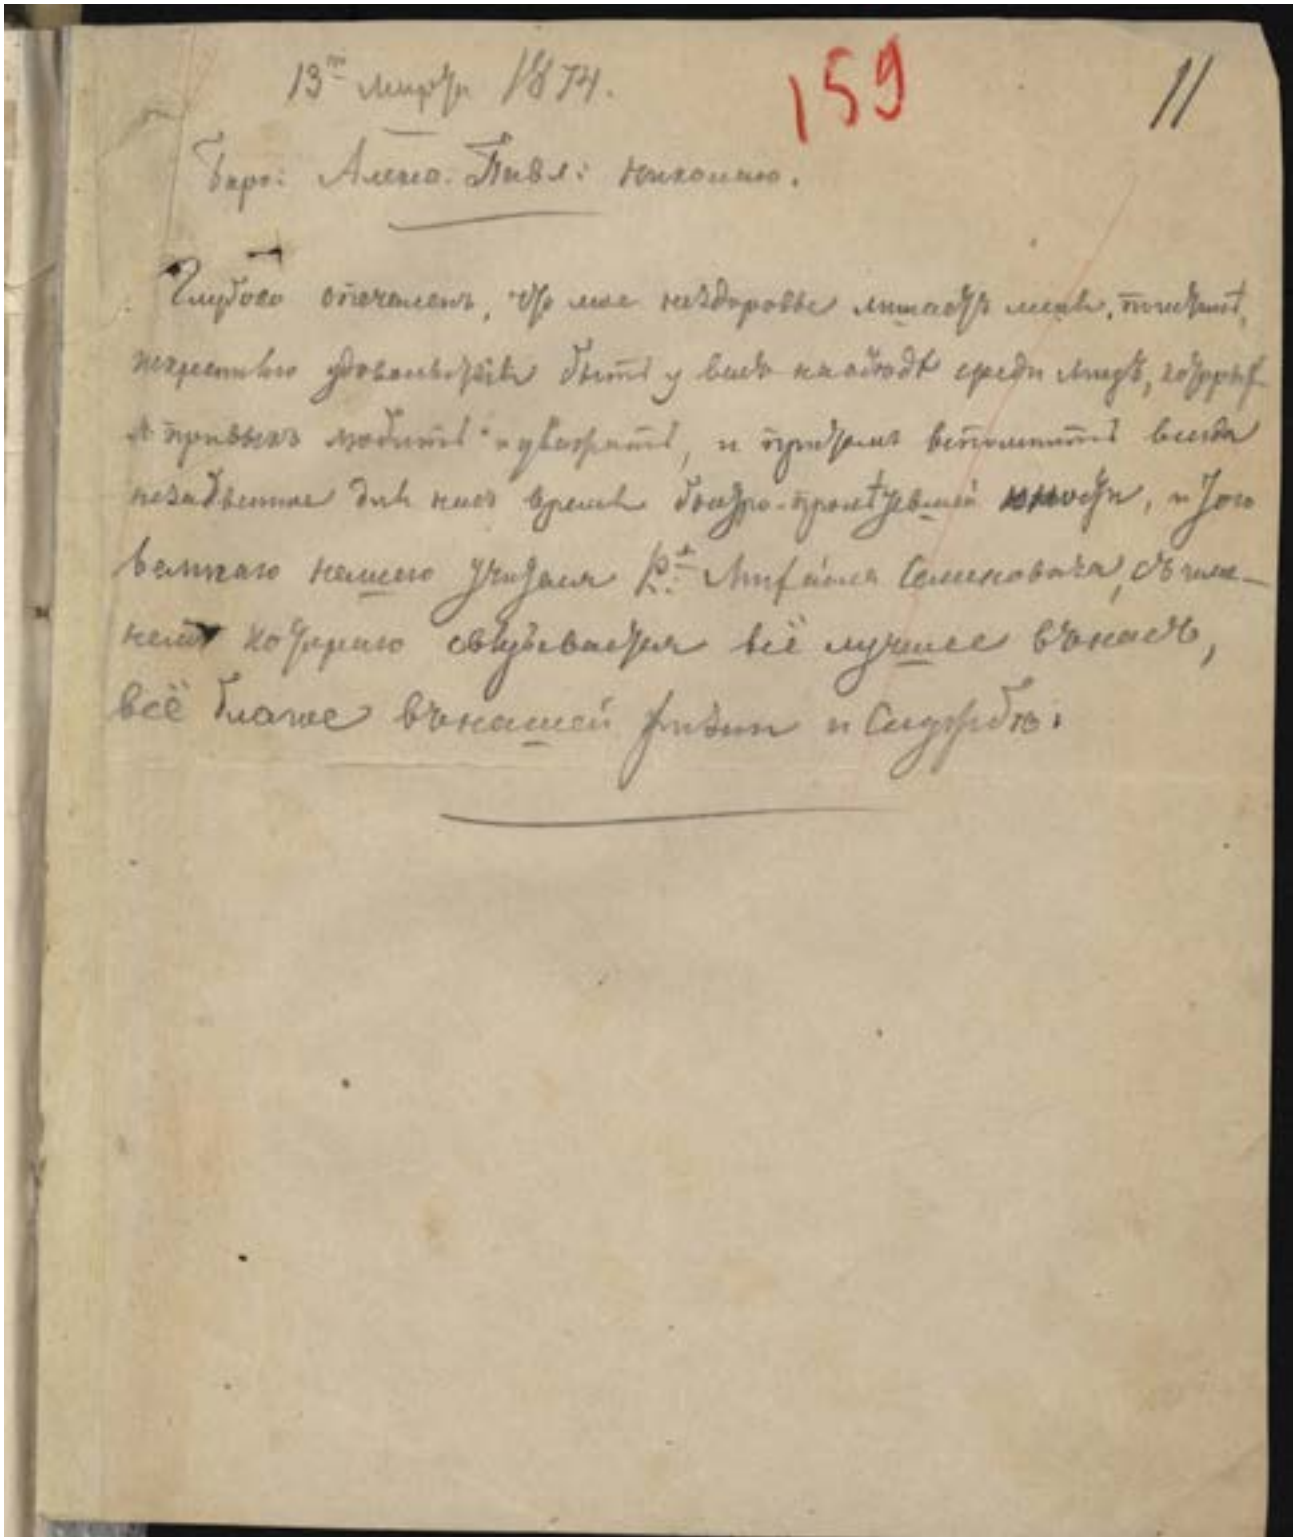 13го марта 1874.
159
11
Баро: Алекс. Павл: Николаю.
Глубоко опечаленъ, что мое нездоровье лишаетъ меня,
искренняго удовольствія быть у васъ на обѣдѣ среди лицъ, которых
я привыкъ любить и уважать, и притомъ вспомнить всегда
незабвенное для насъ время быстро-пролѣтѣвшей юности, и того
великаго нашего учителя К: Михаила Семеновича, съ име-
немъ котораго связывается всё лучшее въ насъ,
всё благое въ нашей жизни и Службѣ: